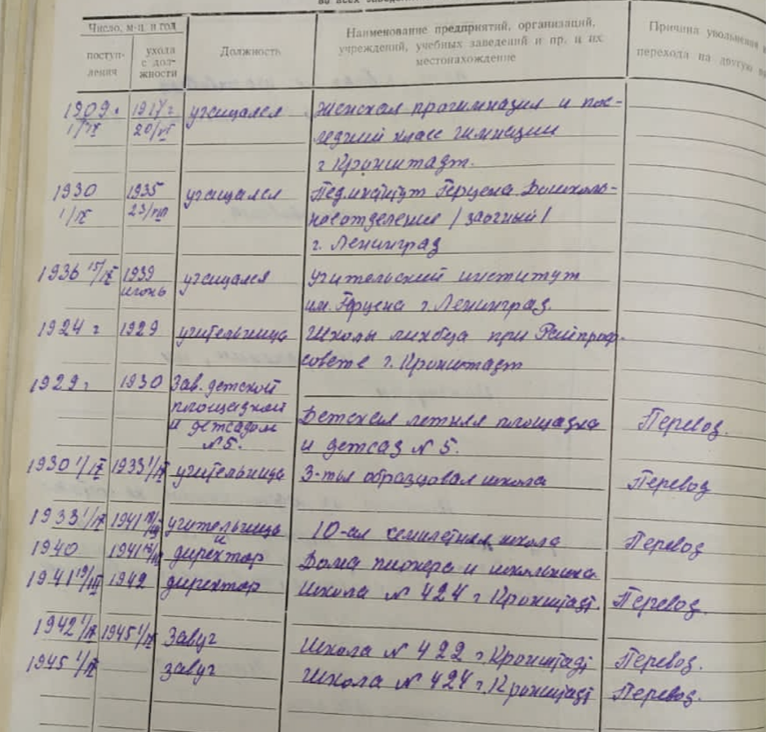 Число, м-ц и год
поступ-
ления
ухода
с дол-
жности
Должность
Наименование предприятий, организаций,
учреждений, учебных заведений и пр. и их
местонахождение
Причина увольнения
перехода на другую
1909 г. 1917 г. учащался Женская прогимназия и пос-
1/IX 20/ ледний класс гимназии
г Кронштадт.
1930 1935 учащался Пединститут Герцена Дошколь-
1/IX 23/VIII ное отделение /заочный/
г. Ленинград
1936 15/IX 1939 учащался Учительский институт
июнь им. Герцена г. Ленинград.
1924 г 1929 учительница Школы ликбеза при Райпроф-
совете г. Кронштадт
1929 г 1930 Зав. детской
площадкой Детская летняя площадка Перевод.
и детсадом и детсад № 5.
№ 5.
1930 1/IX 1933 1/IX учительница 3-тья образцовая школа Перевод
1933 1/IX 1941 учительница 10-ая семилетняя школа Перевод
и
1940 1941 директор Дома пионера и школьника
1941 1942 директор Школа № 424 г Кронштадт. Перевод.
1942 1/IX 1945 1/IX Завуч Школа № 422 г. Кронштадт Перевод.
1945 1/IX завуч Школа № 424 г. Кронштадт Перевод.